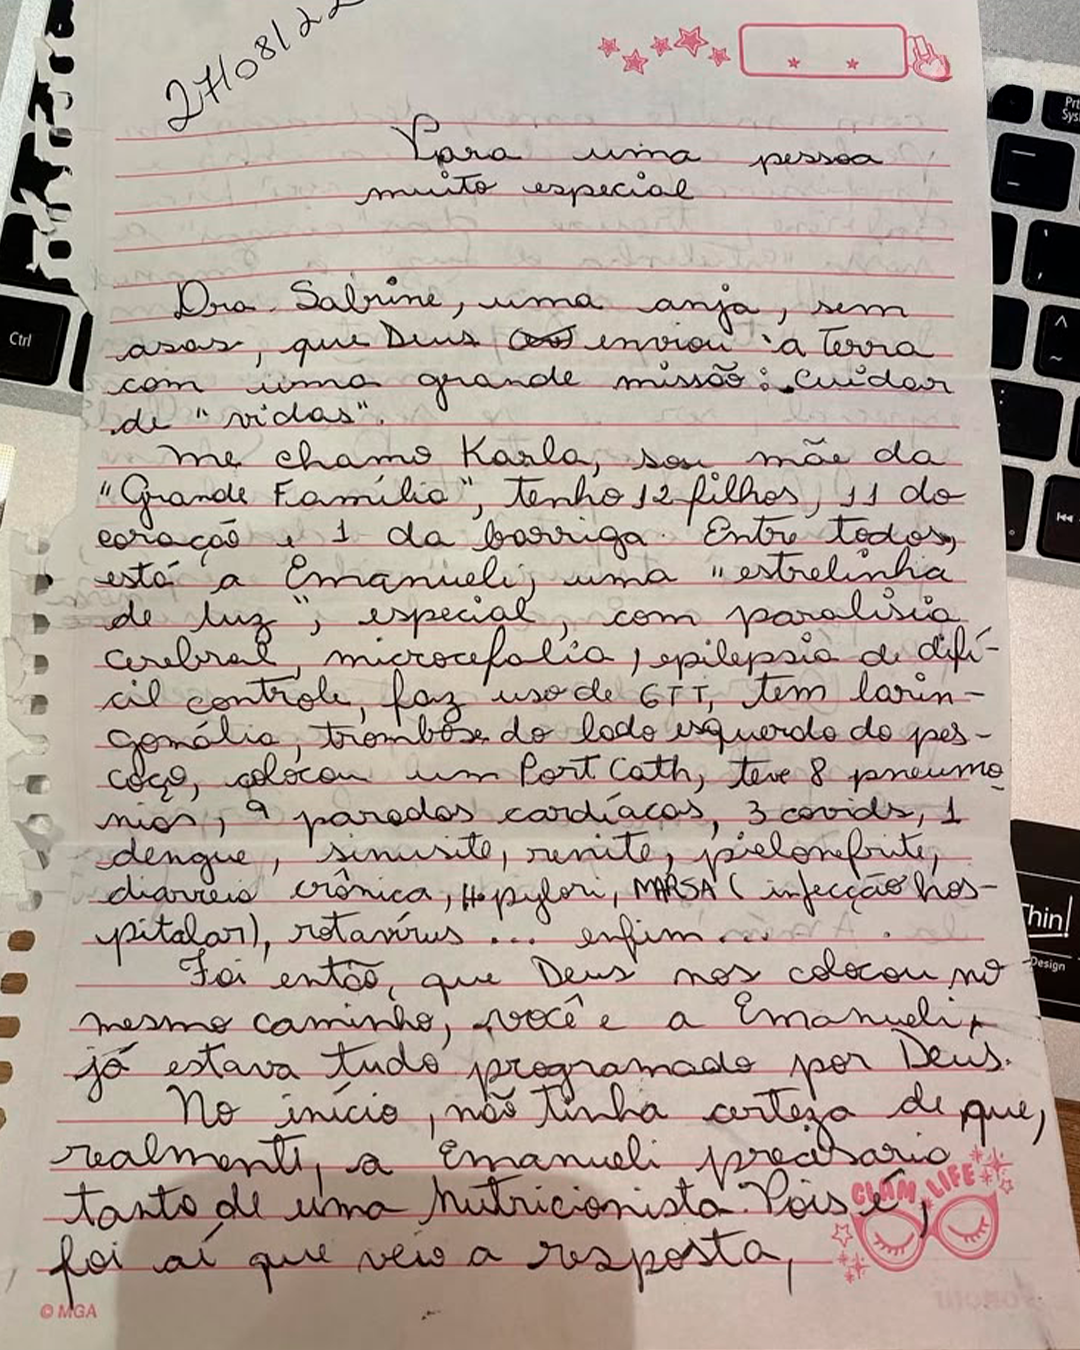 27/08/22
Para uma pessoa
muito especial
Dra. Sabrine, uma anja, sem
asas, que Deus enviou à Terra
com uma grande missão: Cuidar
de "vidas".
Me chamo Karla, sou mãe da
"Grande Família", tenho 12 filhos, 11 do
coração e 1 da barriga. Entre todos,
está a Emanueli, uma "estrelinha
de luz", especial, com paralisia
cerebral, microcefalia, epilepsia de difí-
cil controle, faz uso de GTT, tem larin-
gomália, trombose do lado esquerdo do pes-
coço, colocou um Port Cath, teve 8 pneumo-
nias, 9 paradas cardíacas, 3 covids, 1
dengue, sinusite, renite, pielonefrite,
diarreia crônica, H. pylori, MARSA (infecção hos-
pitalar), rotavírus ... enfim ...
Foi então, que Deus nos colocou no
mesmo caminho, você e a Emanueli,
já estava tudo programado por Deus.
No início, não tinha certeza de que,
realmente, a Emanueli precisaria
tanto de uma Nutricionista. Pois é,
foi aí que veio a resposta,
GLAM LIFE
© MGA
Ctrl
Prt
Sys
Thin!
Design